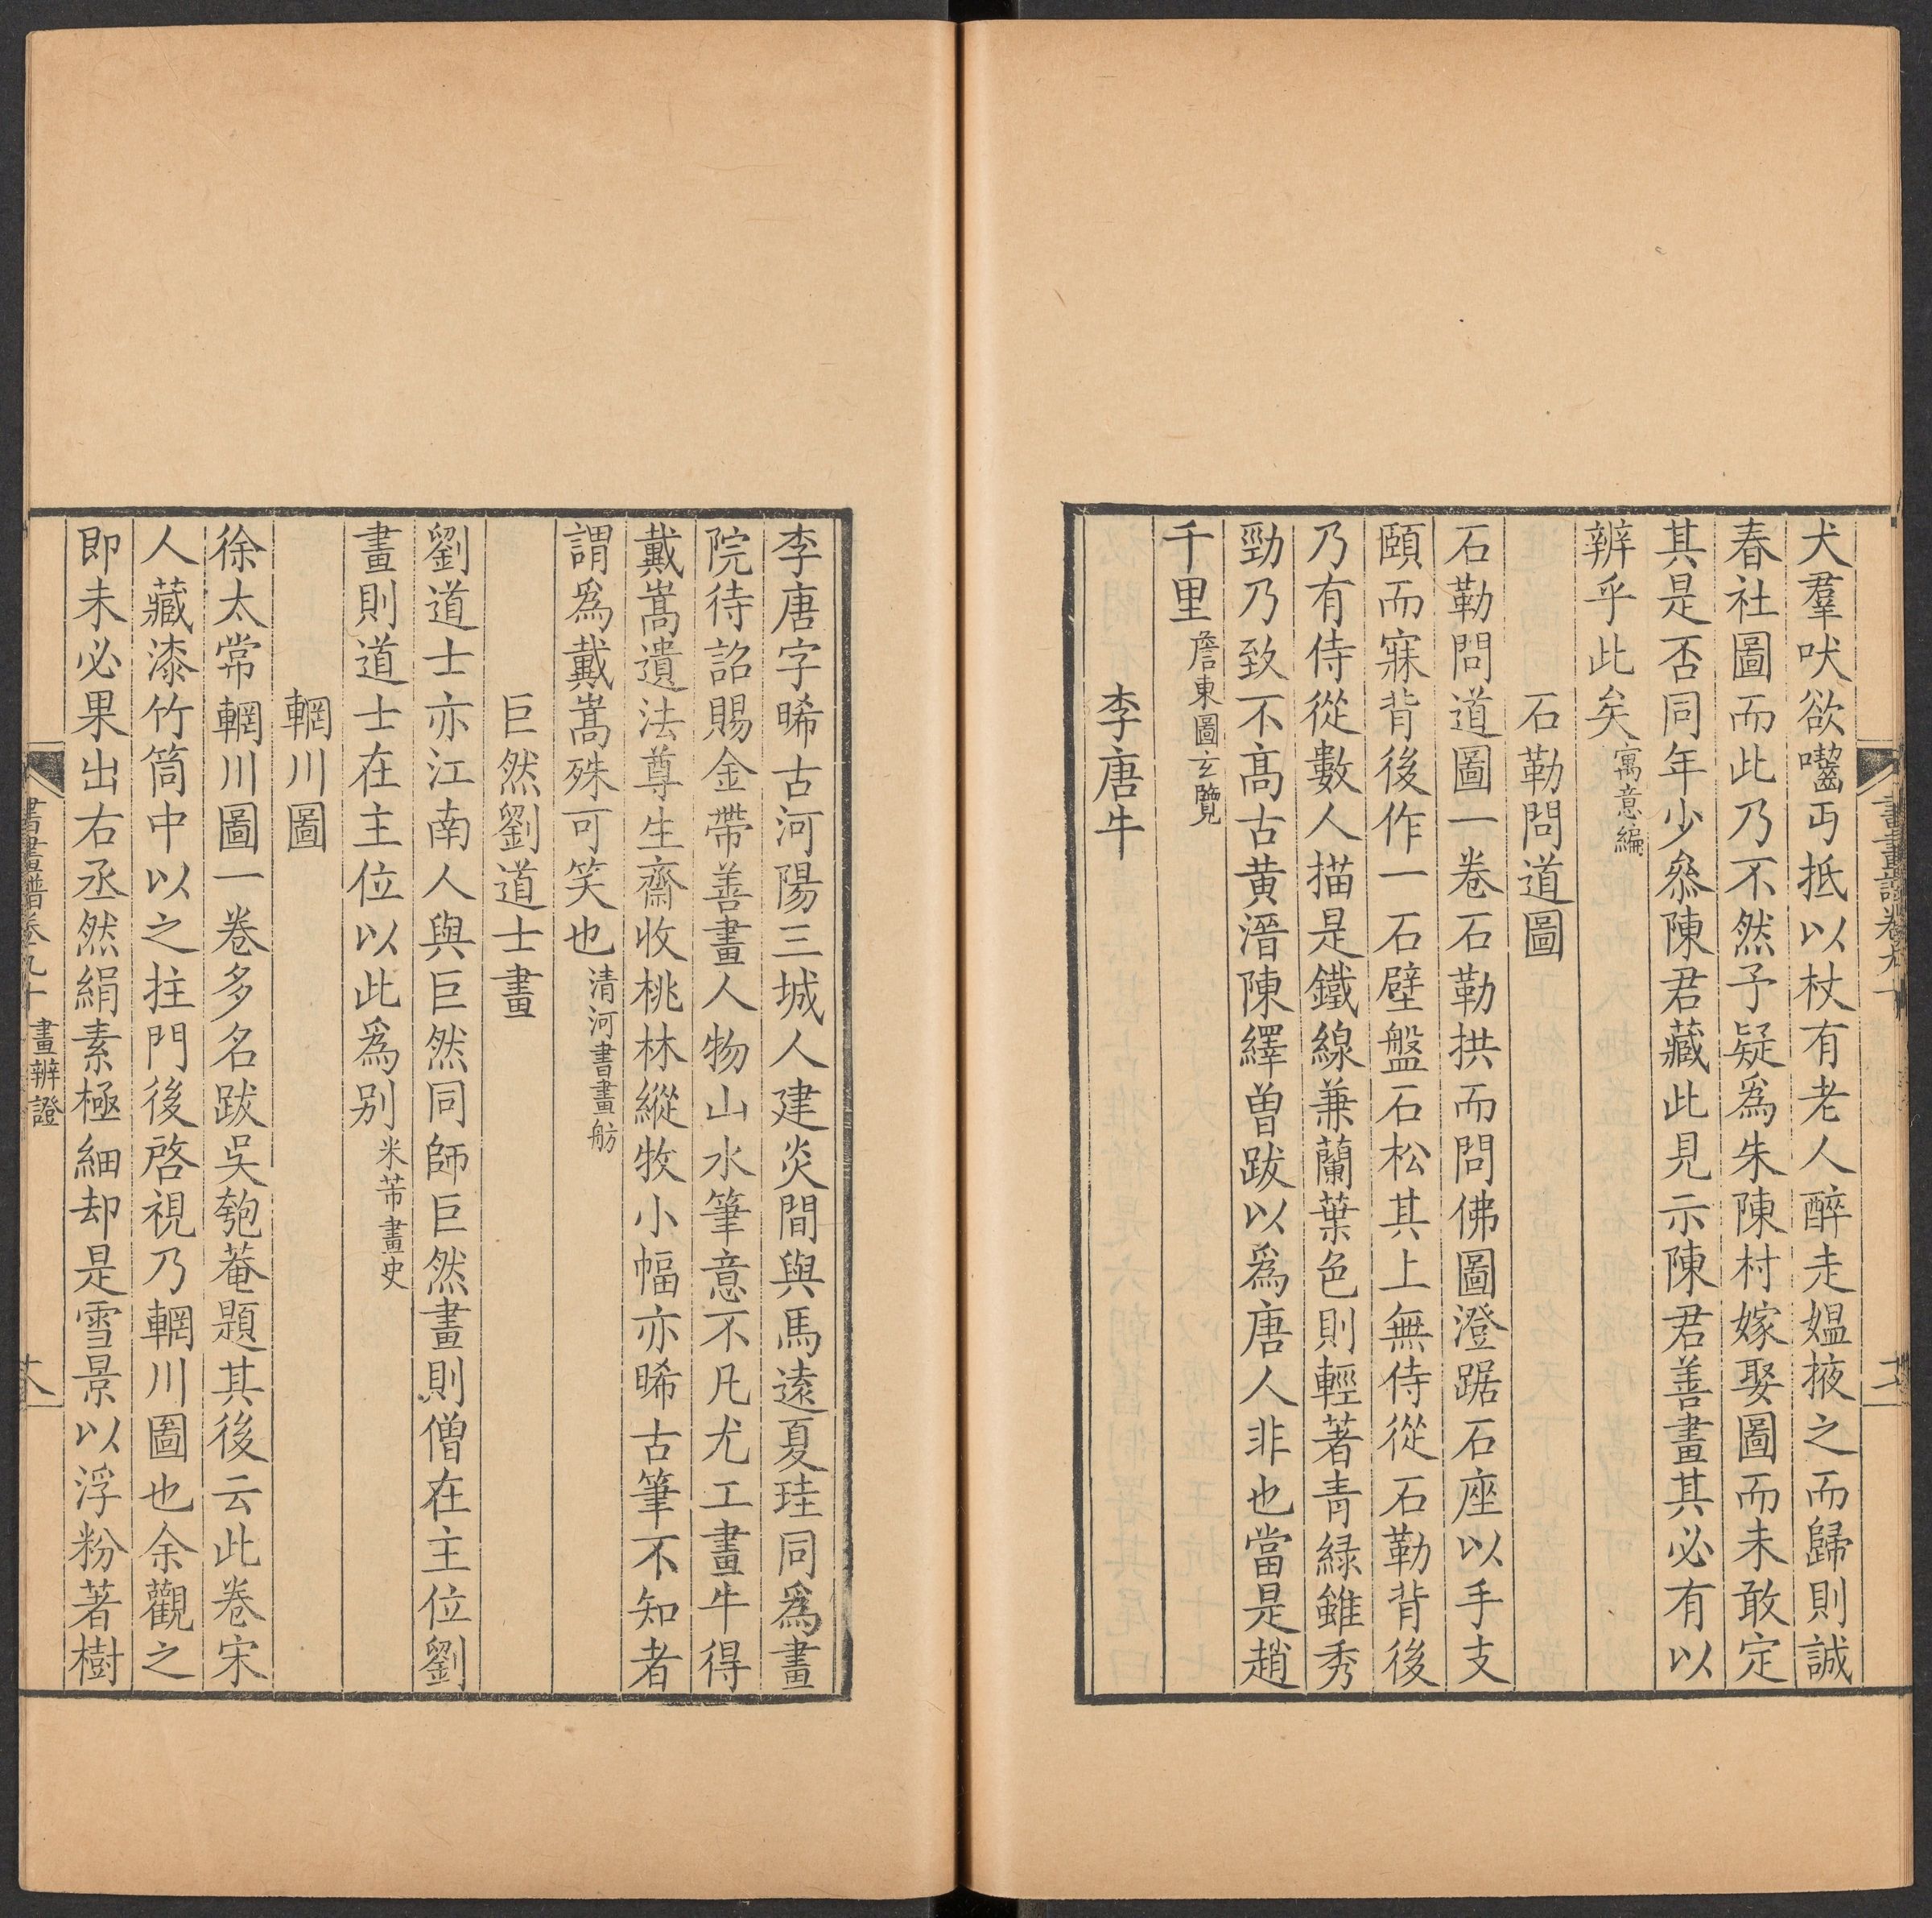 犬羣吠欲囓丐抵以杖有老人醉走媪掖之而歸則誠
春社圖而此乃不然予疑爲朱陳村嫁娶圖而未敢定
其是否同年少叅陳君藏此見示陳君善畫其必有以
辨乎此矣寓意編
石勒問道圖
石勒問道圖一卷石勒拱而問佛圖澄踞石座以手支
頤而寐背後作一石壁盤石松其上無侍從石勒背後
乃有侍從數人描是鐵線兼蘭葉色則輕著青緑雖秀
勁乃致不高古黄溍陳繹曽跋以爲唐人非也當是趙
千里詹東圖玄覽
李唐牛
李唐字晞古河陽三城人建炎間與馬逺夏珪同爲畫
院待詔賜金帶善畫人物山水筆意不凡尤工畫牛得
戴嵩遺法尊生齋收桃林縱牧小幅亦晞古筆不知者
謂爲戴嵩殊可笑也清河書畫舫
巨然劉道士畫
劉道士亦江南人與巨然同師巨然畫則僧在主位劉
畫則道士在主位以此爲别米芾畫史
輞川圖
徐太常輞川圖一卷多名跋吳匏菴題其後云此卷宋
人藏漆竹筒中以之拄門後啓視乃輞川圖也余觀之
即未必果出右丞然絹素極細却是雪景以浮粉著樹
書畫譜卷九十 畫辨證